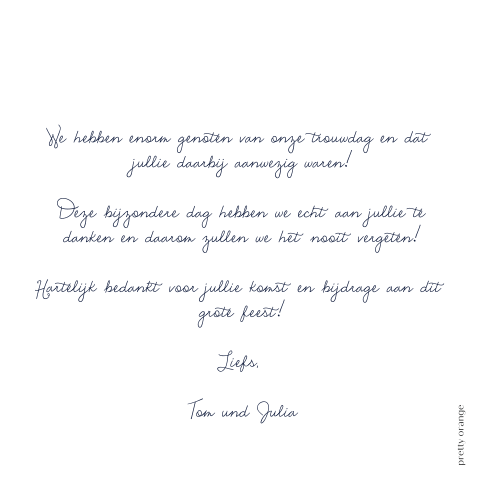 We hebben enorm genoten van onze trouwdag en dat
jullie daarbij aanwezig waren!
Deze bijzondere dag hebben we echt aan jullie te
danken en daarom zullen we het nooit vergeten!
Hartelijk bedankt voor jullie komst en bijdrage aan dit
grote feest!
Liefs,
Tom und Julia
pretty orange